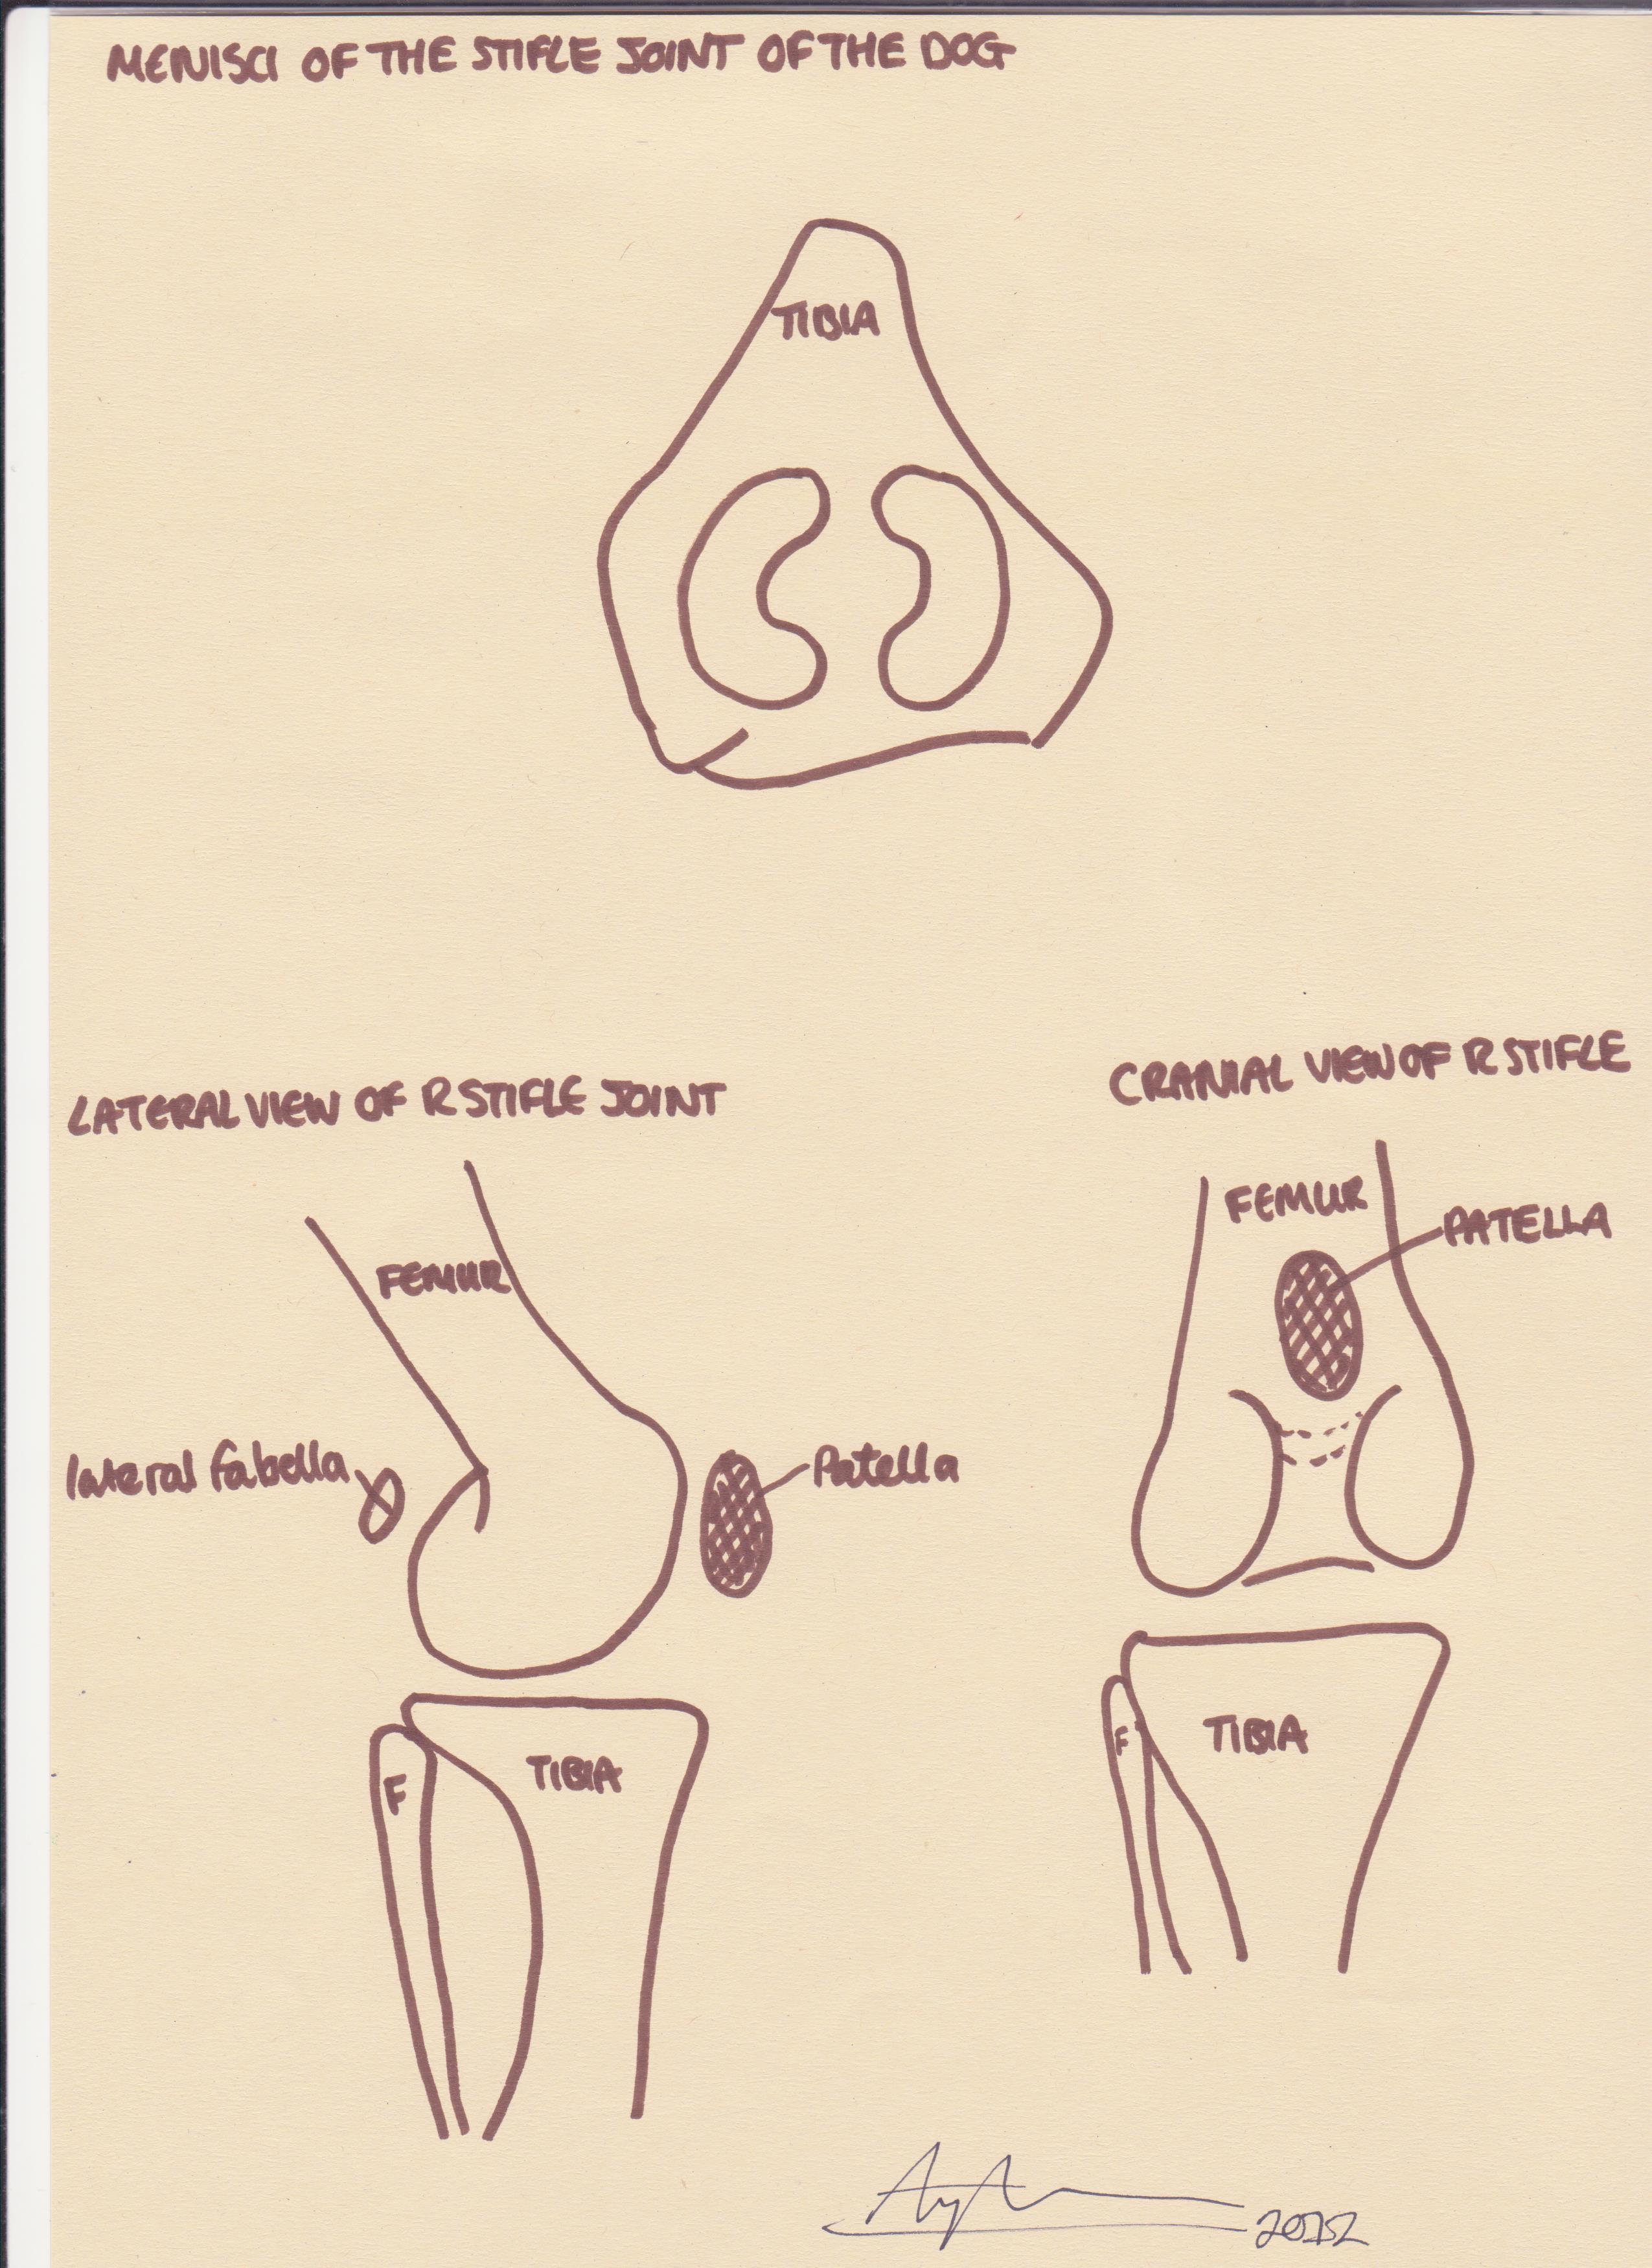 MENISCI OF THE STIFLE JOINT OF THE DOG
TIBIA
LATERAL VIEW OF R STIFLE JOINT
FEMUR
lateral fabella
Patella
F
TIBIA
CRANIAL VIEW OF R STIFLE
FEMUR
PATELLA
F
TIBIA